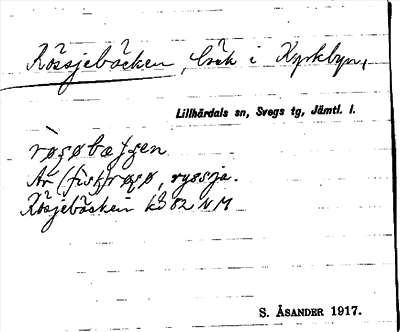 Rössjebäcken, bäck i Kyrkbyn,
Lillhärdals sn, Svegs tg, Jämtl. l.
røʃøbæʃʃen
Av (fisk)røʃø, ryssja.
Rösjebäcken kb 82 N M
S. ÅSANDER 1917.